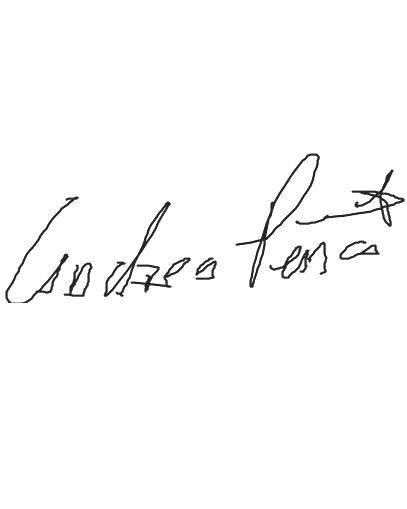 Andrea Pena